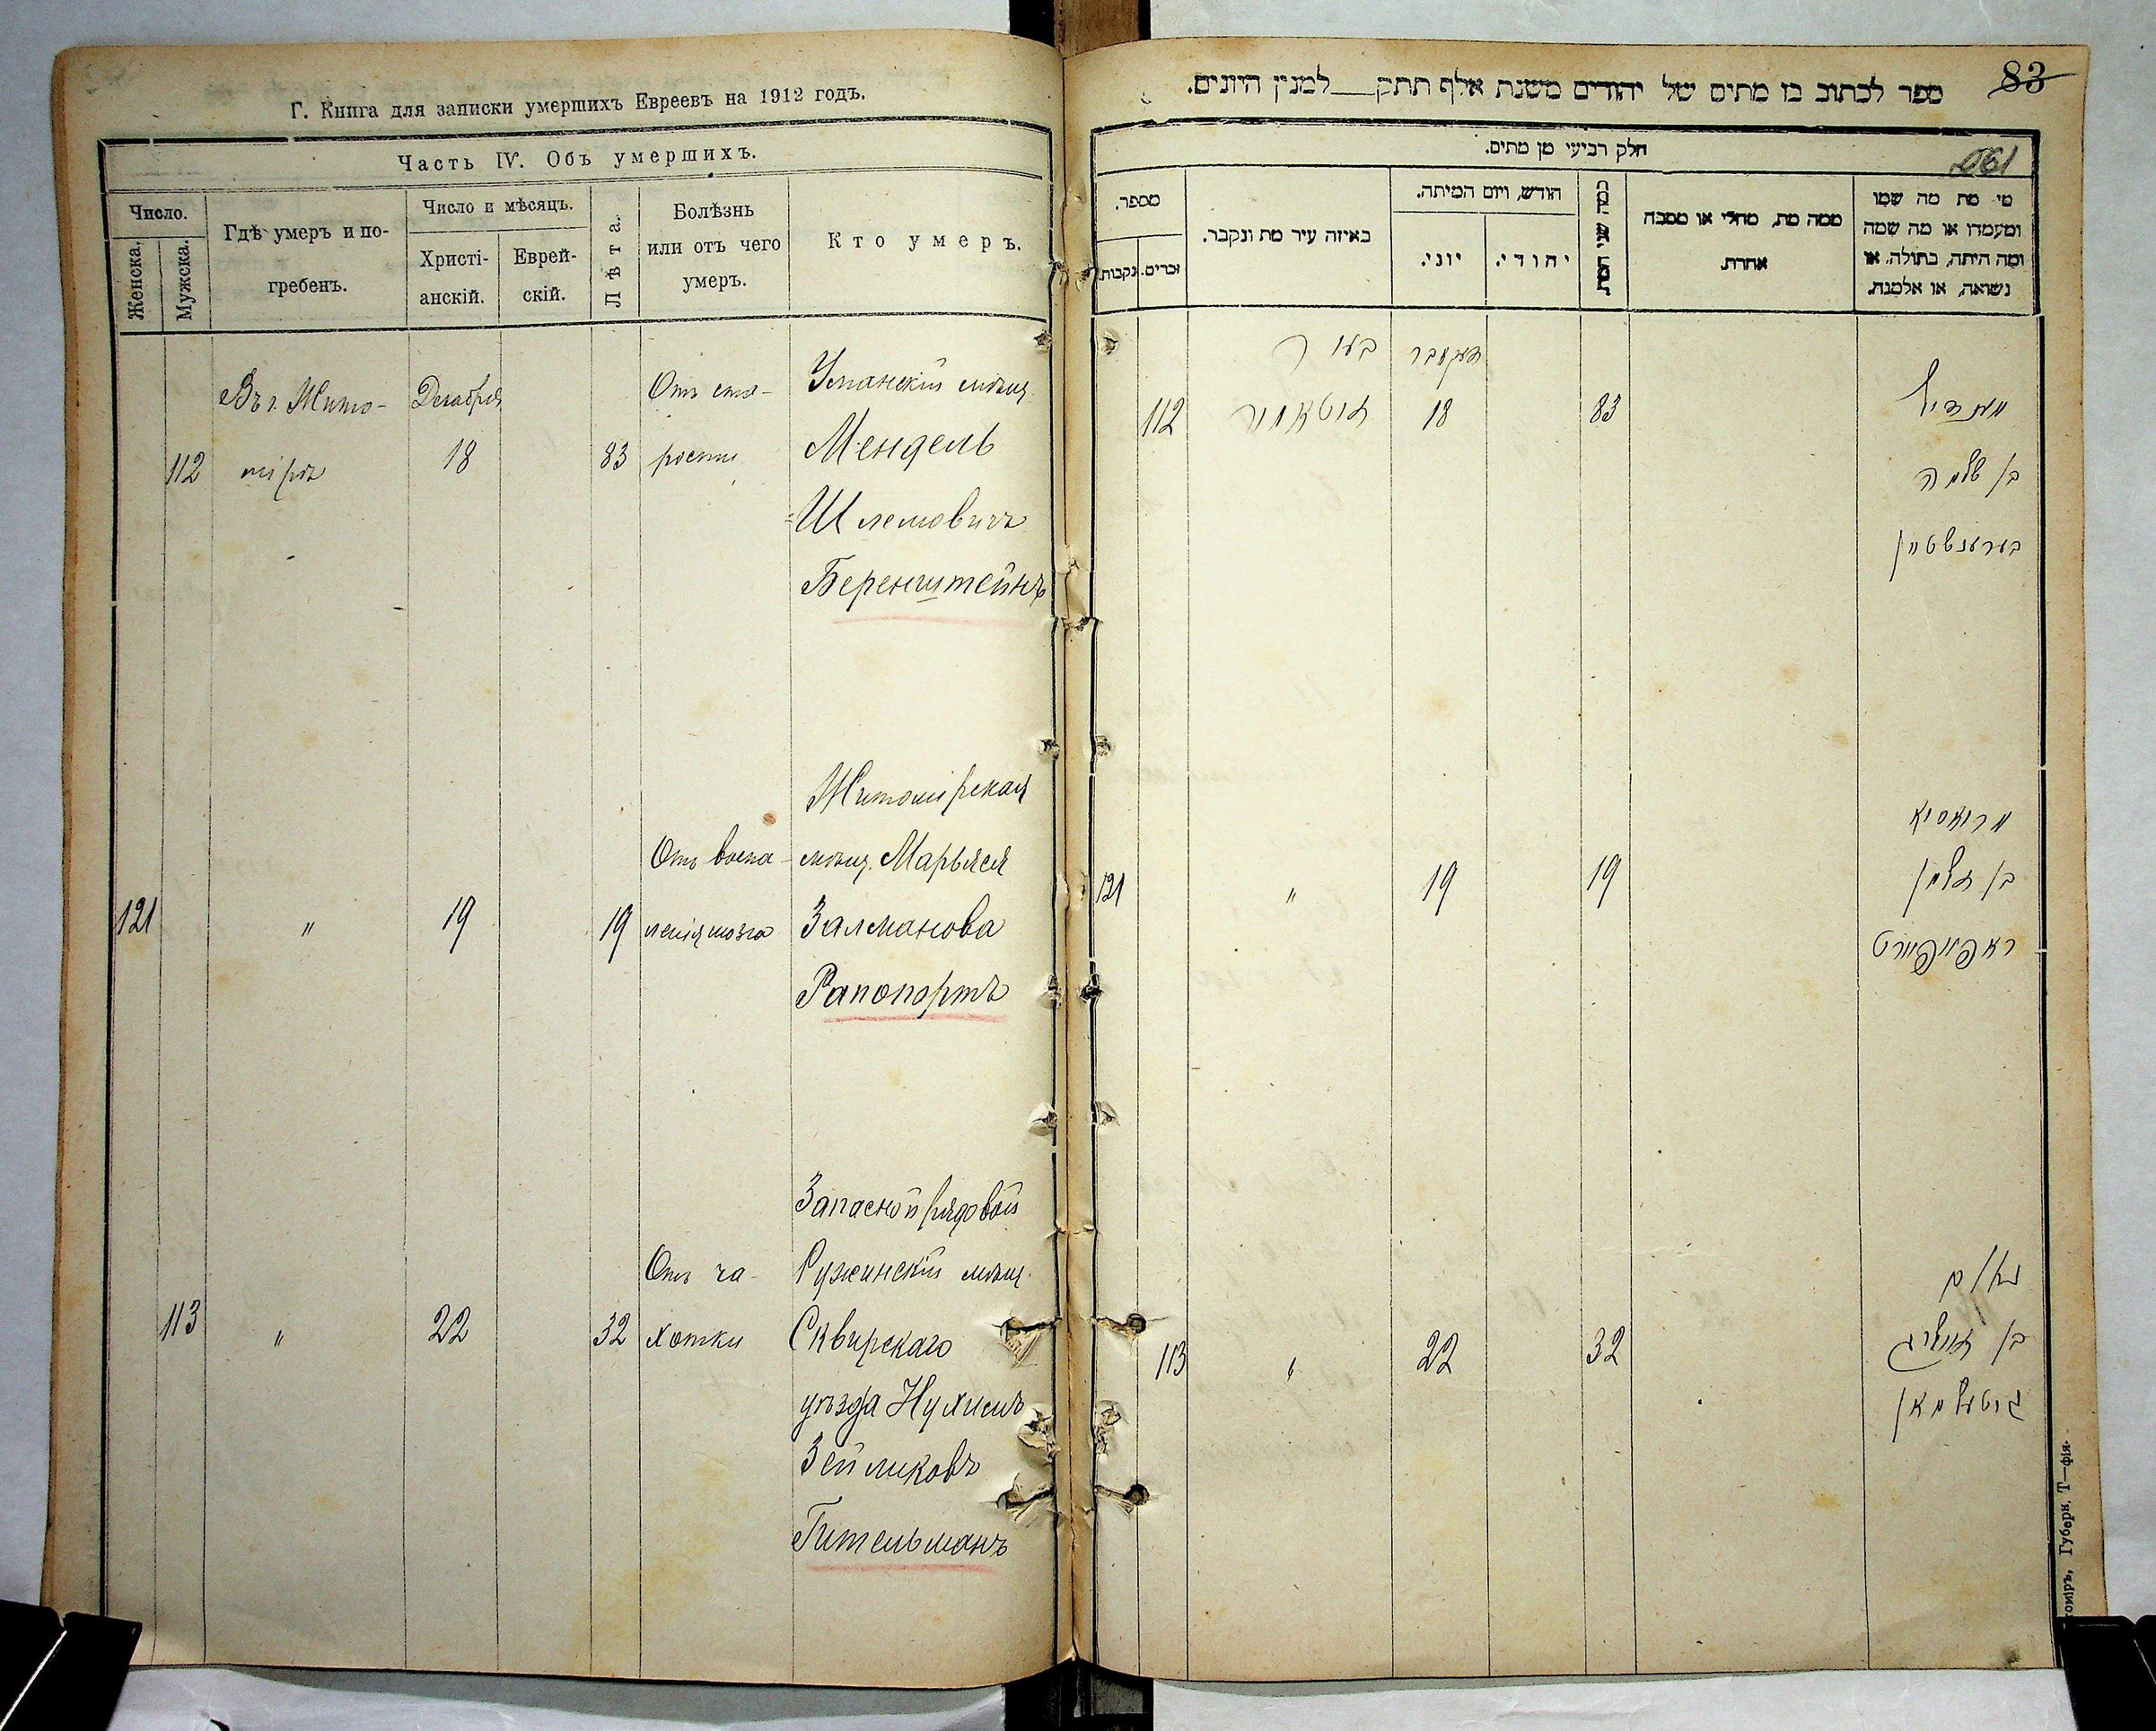 Г. Книга для записки умершихъ Евреевъ на 1912 годъ.
Часть IV. Объ умершихъ.
Число.
Женска.
Мужска.
Гдѣ умеръ и по-
гребенъ.
Число и мѣсяцъ.
Христі-
анскій.
Еврей-
скій.
Лѣта.
Болѣзнь
или отъ чего
умеръ.
Кто умеръ.
112
Въ г. Жито-
мірѣ
Декабря
18
83
Отъ ста-
рости
Уманскій мѣщ.
Мендель
Шлемовичъ
Беренштейнъ
121
"
19
19
Отъ воспа-
ленія мозга
Житомірская
мѣщ. Марьяся
Залманова
Рапопортъ
113
"
22
32
Отъ ча-
хотки
Запасной рядовой
Ружинскій мѣщ.
Сквирскаго
уѣзда Нухимъ
Зейликовъ
Гительманъ
83
ספר לכתוב בו מתים של יהודים משנת אלף תתק— למנין היונים.
חלק רביעי מן מתים.
190
מספר.
נקבות.
זכרים.
באיזה עיר מת ונקבר.
חודש, ויום המיתה.
יוני.
יהודי.
ממה מת, מחלי או מסבה
אחרת.
מי מת מה שמו
ומעמדו או מה שמה
ומה היתה, בתולה, או
נשואה, או אלמנה.
112
בעיר
זיטאמיר
דעקאבר
18
83
מענדיל
בן שלמה
בערענשטיין
121
"
19
19
מריאסיא
בן זלמן
ראפאפורט
113
"
22
32
נחום
בן זעליג
גיטעלמאן
оміръ, Губерн. Т—фія.